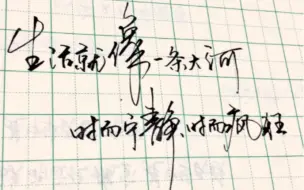 生活就像一条大河
时而宁静，时而疯狂